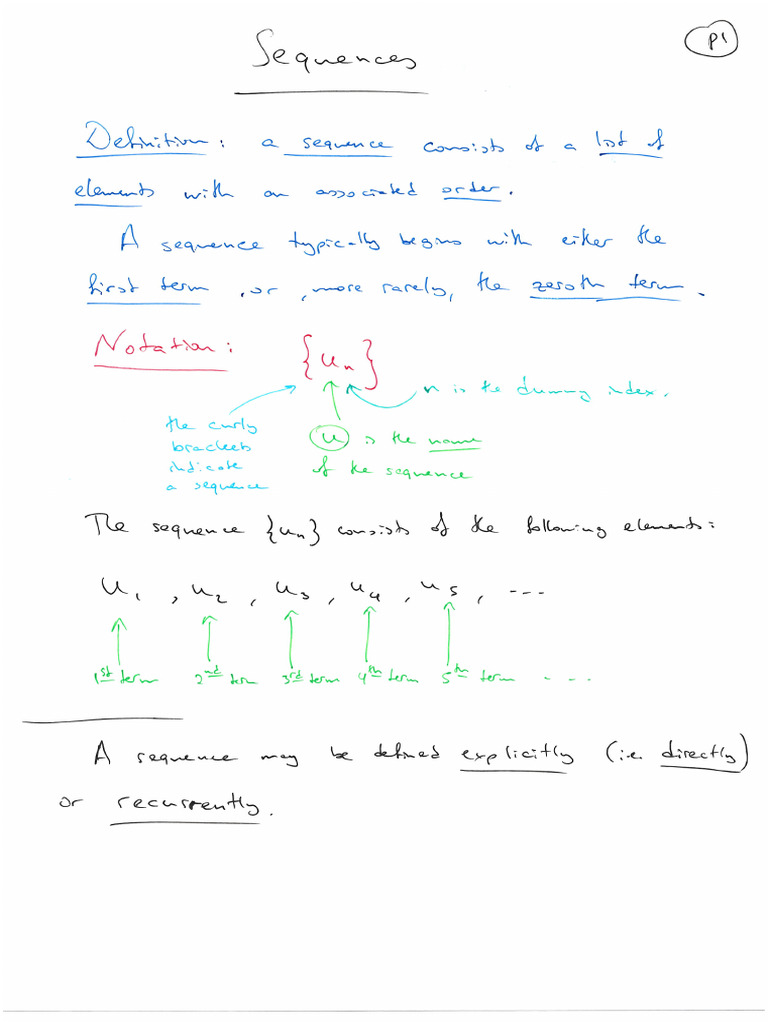 Sequences
p1
Definition: a sequence consists of a list of
elements with an associated order.
A sequence typically begins with either the
first term, or, more rarely, the zeroth term.
Notation:
{uₙ}
n is the dummy index.
the curly
brackets
indicate
a sequence
u is the name
of the sequence
The sequence {uₙ} consists of the following elements:
u₁, u₂, u₃, u₄, u₅, ---
1st term 2nd term 3rd term 4th term 5th term ----
A sequence may be defined explicitly (i.e. directly)
or recurrently.